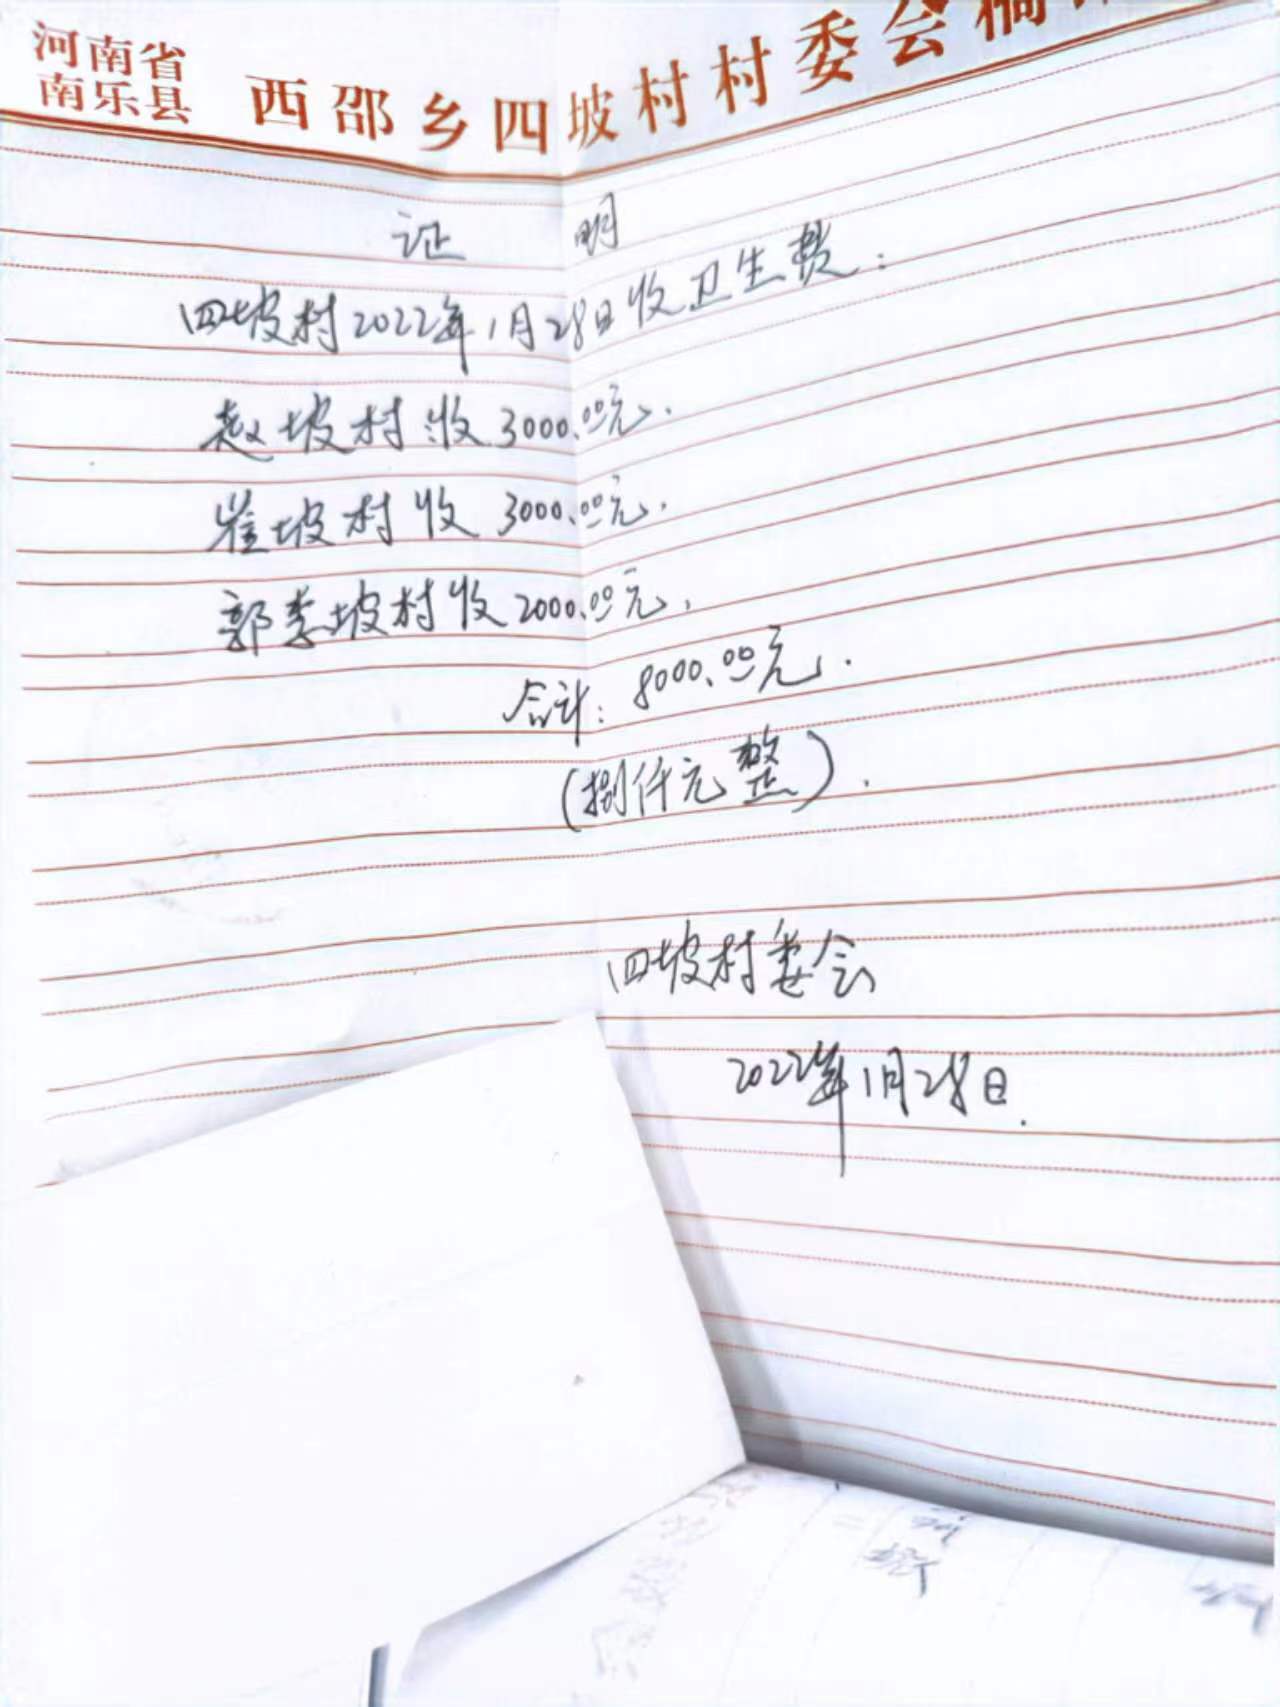 河南省
南乐县
西邵乡四坡村村委会稿
证 明
四坡村2022年1月28日收卫生费：
赵坡村收3000.00元.
崔坡村收3000.00元.
郭李坡村收2000.00元.
合计：8000.00元.
(捌仟元整).
四坡村委会
2022年1月28日.